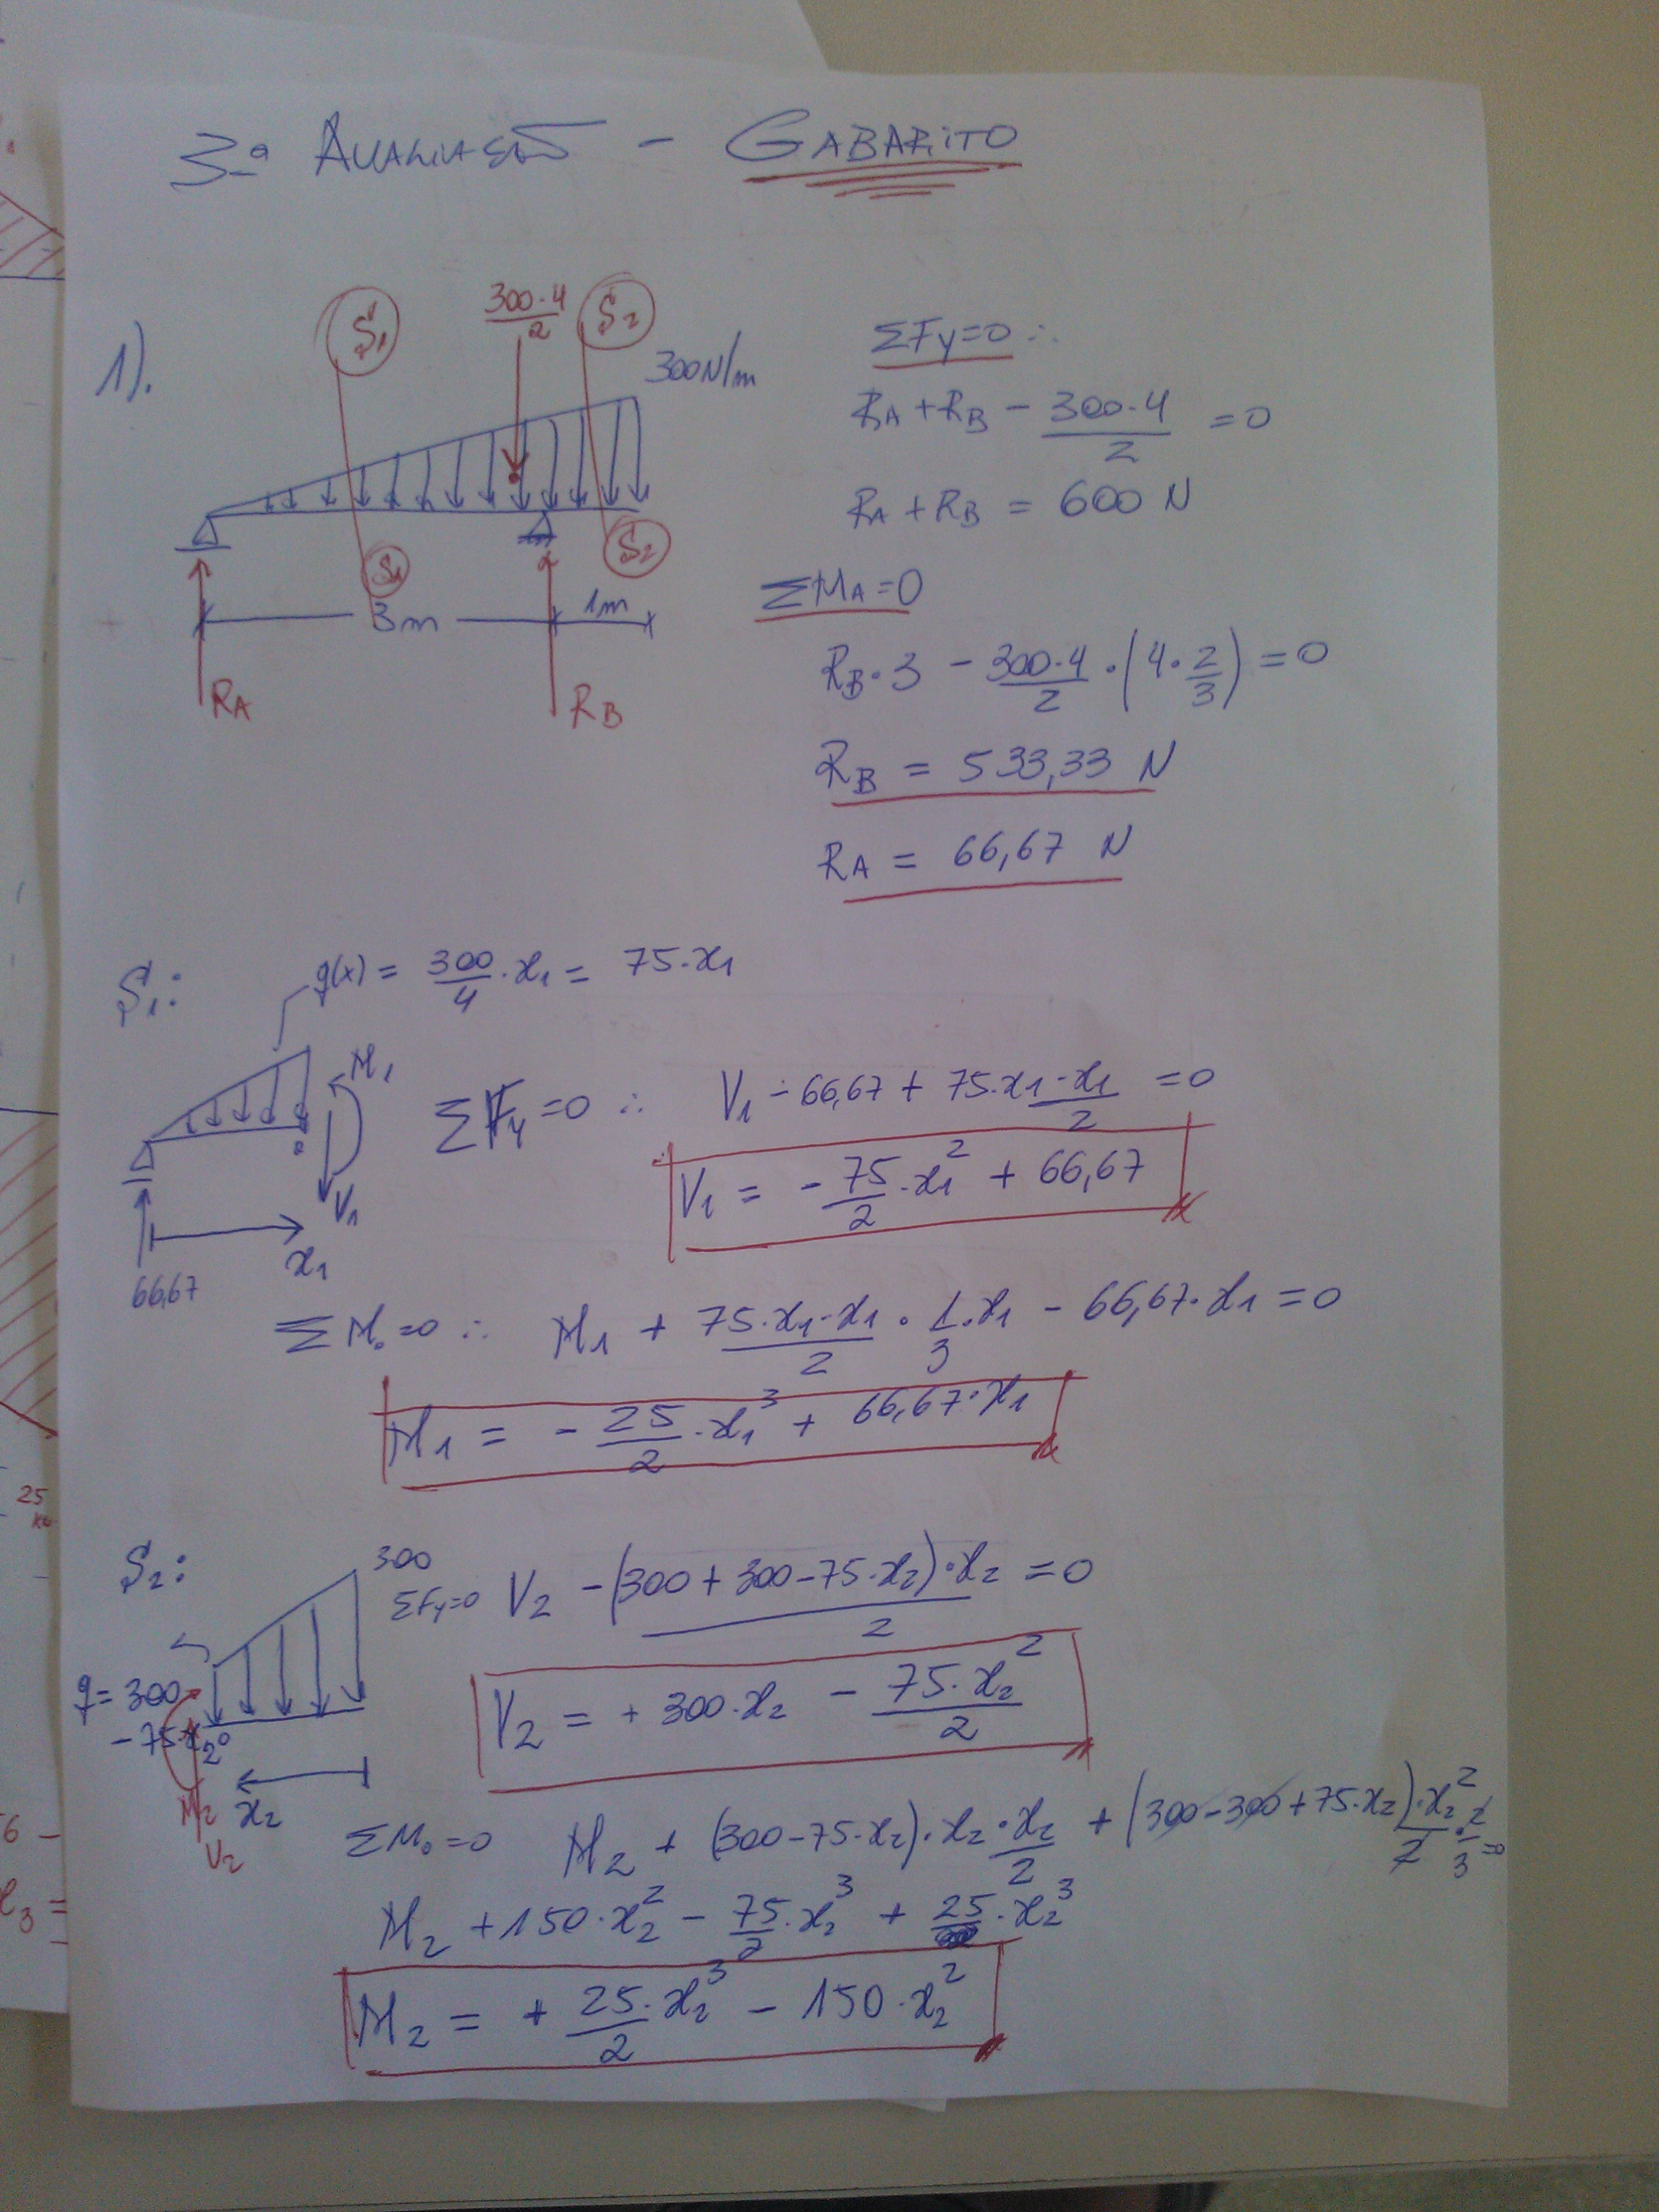 3ª AVALIAÇÃO - GABARITO
1).
S1
300·4/2
S2
300N/m
S1
S2
3m
1m
RA
RB
ΣFy=0 ∴
RA+RB - 300·4/2 = 0
RA + RB = 600 N
ΣMA=0
RB·3 - 300·4/2 · (4·2/3) = 0
RB = 533,33 N
RA = 66,67 N
S1:
q(x) = 300/4 · x1 = 75·x1
M1
V1
x1
66,67
ΣFy=0 ∴ V1 - 66,67 + 75·x1·x1/2 = 0
V1 = - 75/2 · x1² + 66,67
ΣMo=0 ∴ M1 + 75·x1·x1/2 · 1/3·x1 - 66,67·x1 = 0
M1 = - 25/2 · x1³ + 66,67·x1
S2:
300
q = 300
-75·x2
o
M2
x2
V2
ΣFy=0 V2 - (300+300-75·x2)·x2/2 = 0
V2 = + 300·x2 - 75·x2²/2
ΣMo=0 M2 + (300-75·x2)·x2·x2/2 + (300-300+75·x2)·x2²/2 · 2/3 = 0
M2 + 150·x2² - 75/2·x2³ + 25·x2³
M2 = + 25·x2³/2 - 150·x2²
25
6 -
x3 =